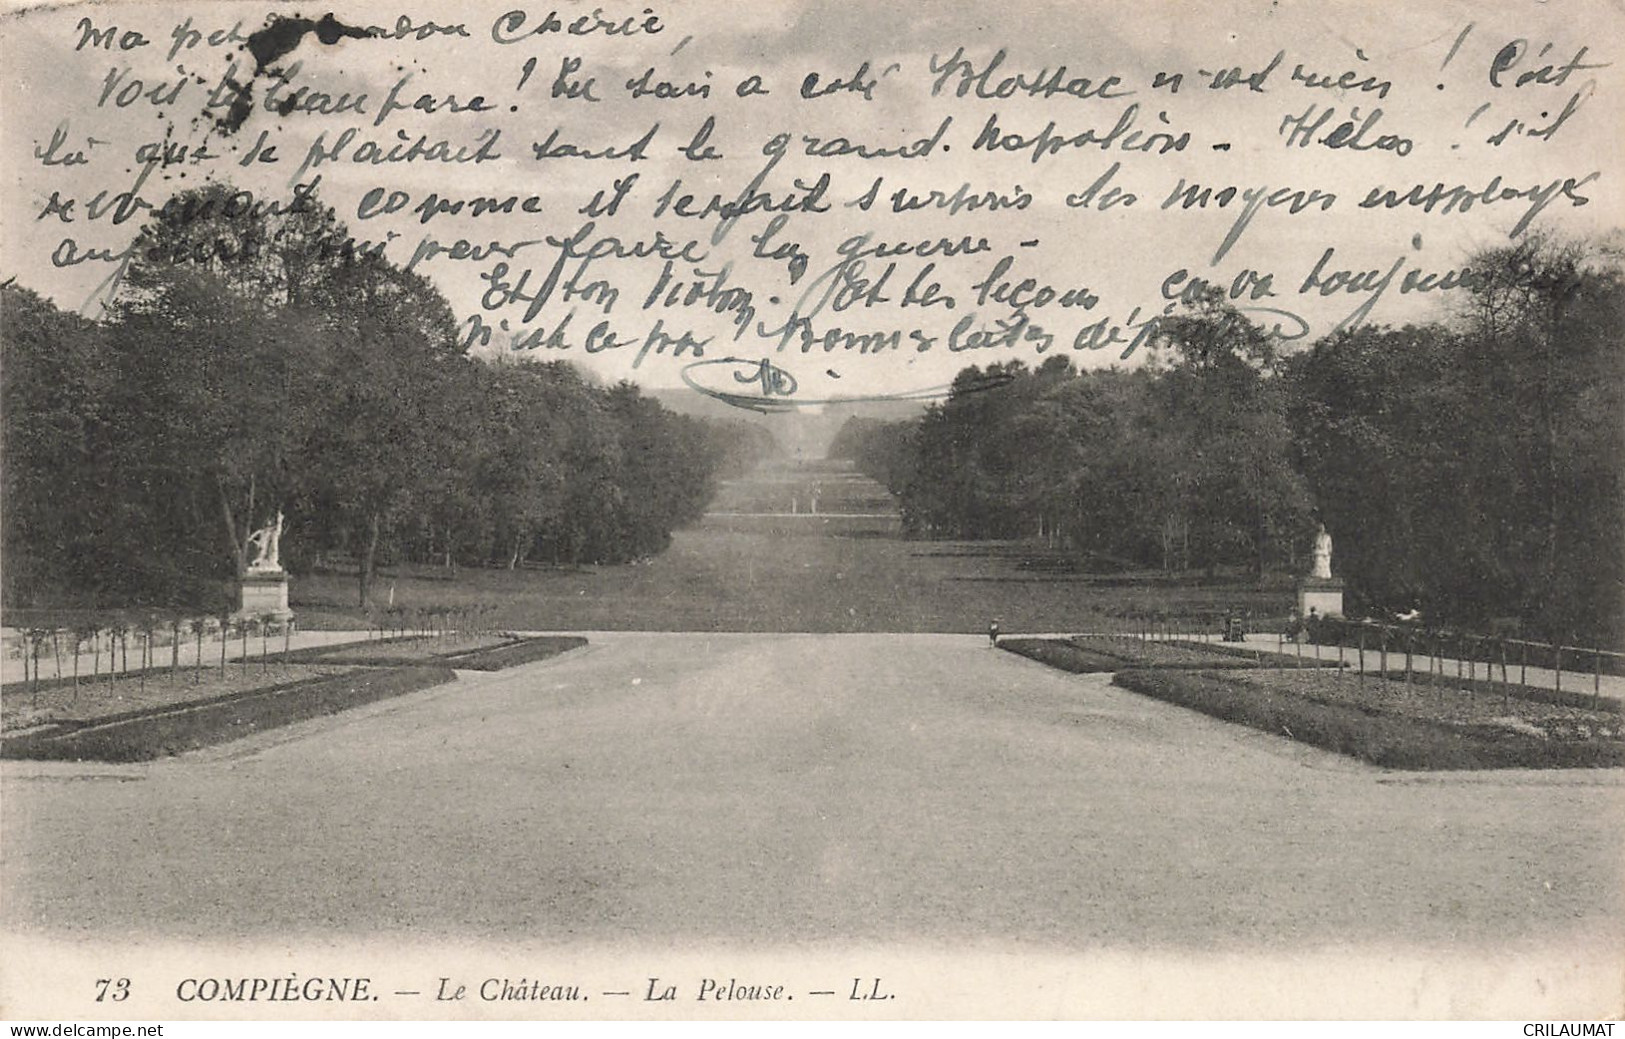 Ma Chérie,
Vois le beau parc ! Tu sais a coté Blossac n'est rien ! C'est
là que se plaisait tant le grand Napoléon - Hélas ! s'il
revenait, comme il serait surpris des moyens employés
aujourd'hui pour faire la guerre -
Et ton violon ? Et tes leçons, ça va toujours
N'est ce pas ? Bonnes
73 COMPIÈGNE. — Le Château. — La Pelouse. — LL.
CRILAUMAT
https://www.delcampe.net